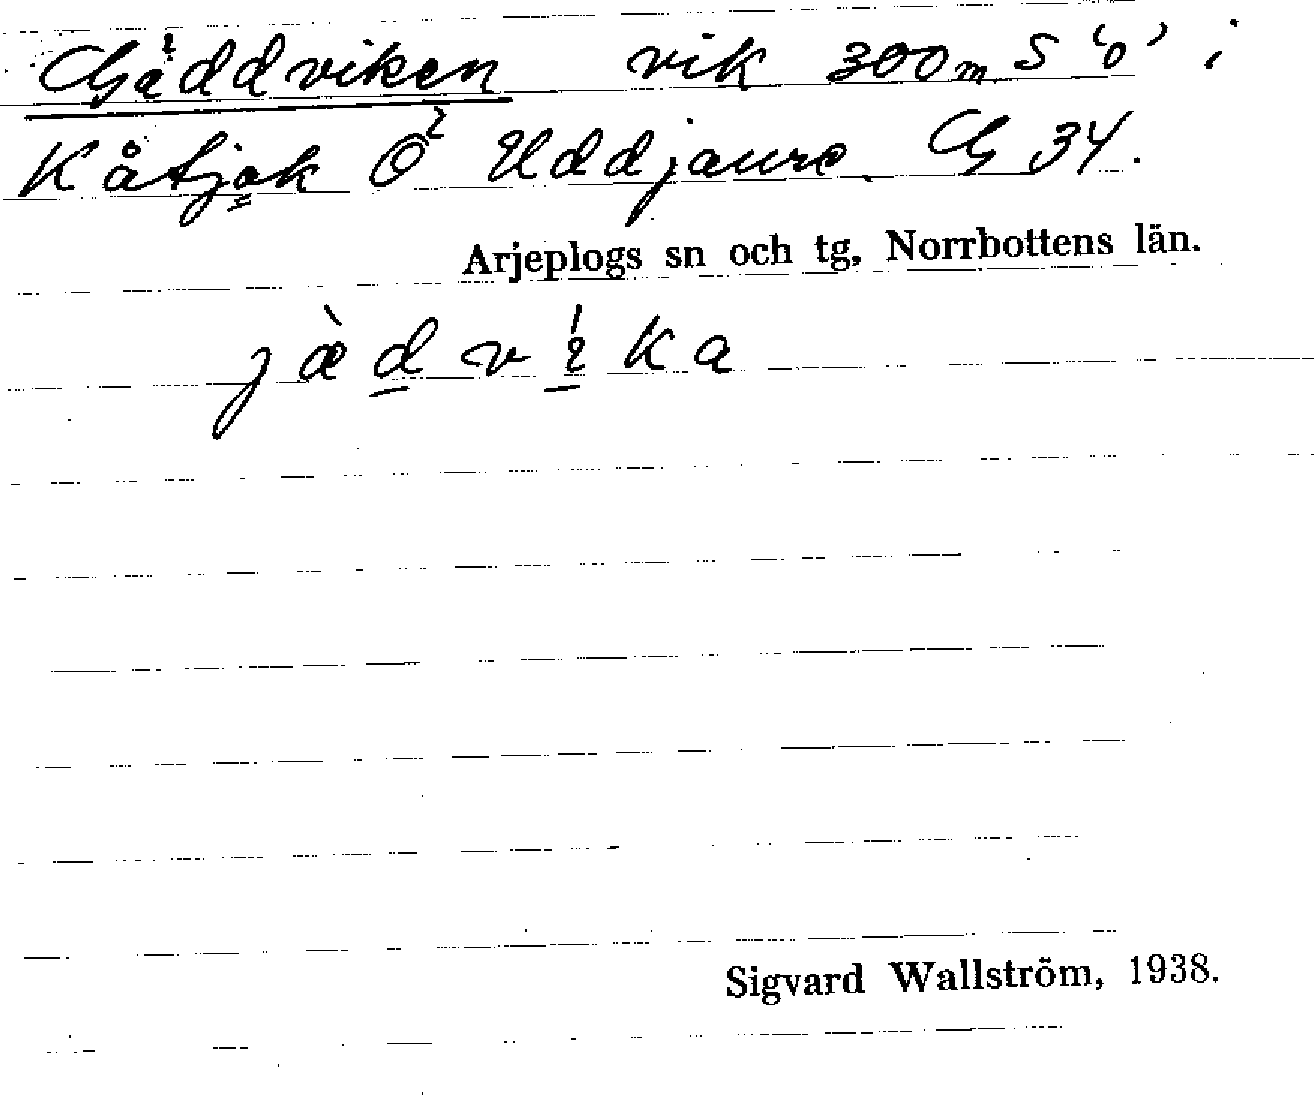 Gäddviken vik 300m S 'o' i
Kåtjok Ö Uddjaure. G 34.
Arjeplogs sn och tg, Norrbottens län.
jæ̀dvíka
Sigvard Wallström, 1938.